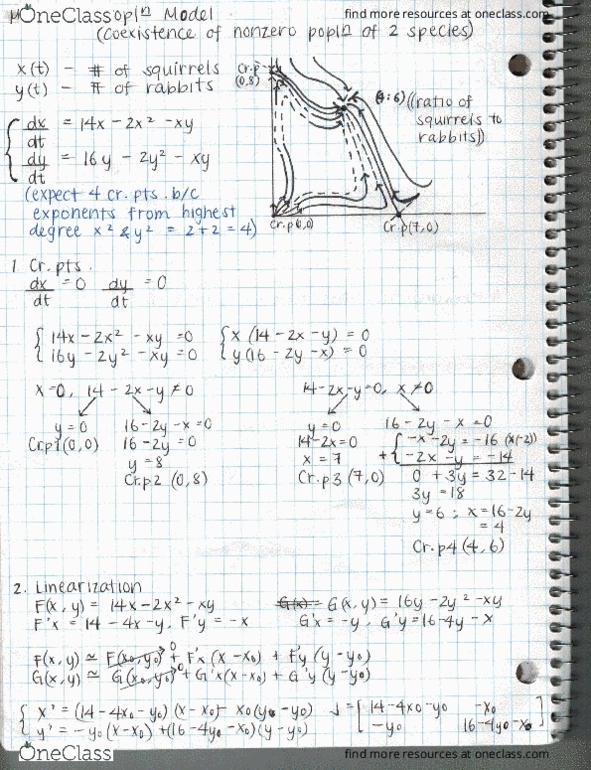 OneClass popl<sup>n</sup> Model
find more resources at oneclass.com
(Coexistence of nonzero popl<sup>n</sup> of 2 species)
x(t) - # of squirrels
y(t) - # of rabbits
Cr.p (0,8)
(4:6) ((ratio of squirrels to rabbits))
Cr.p(0,0)
Cr.p(7,0)
{ dx/dt = 14x - 2x² - xy
dy/dt = 16y - 2y² - xy
(expect 4 cr. pts. b/c
exponents from highest
degree x² & y² = 2+2 = 4)
1 Cr. pts.
dx/dt = 0 dy/dt = 0
{ 14x - 2x² - xy = 0 { x (14 - 2x - y) = 0
16y - 2y² - xy = 0 y (16 - 2y - x) = 0
x=0, 14 - 2x - y ≠ 0
y = 0 16 - 2y - x = 0
Cr.p1 (0,0) 16 - 2y = 0
y = 8
Cr.p2 (0,8)
14 - 2x - y = 0, x ≠ 0
y = 0 16 - 2y - x = 0
14 - 2x = 0 { -x - 2y = -16 (x(-2))
x = 7 + -2x - y = -14
Cr.p3 (7,0) 0 + 3y = 32 - 14
3y = 18
y = 6 ; x = 16 - 2y
= 4
Cr.p4 (4,6)
2. Linearization
F(x,y) = 14x - 2x² - xy G(x,y) = 16y - 2y² - xy
F'x = 14 - 4x - y, F'y = -x G'x = -y, G'y = 16 - 4y - x
F(x,y) ≃ F(x₀,y₀)→0 + F'x (x - x₀) + F'y (y - y₀)
G(x,y) ≃ G(x₀,y₀)→0 + G'x (x - x₀) + G'y (y - y₀)
{ x' = (14 - 4x₀ - y₀) (x - x₀) - x₀(y - y₀) J = [ 14 - 4x₀ - y₀ -x₀
y' = -y₀ (x - x₀) + (16 - 4y₀ - x₀)(y - y₀) -y₀ 16 - 4y₀ - x₀ ]
OneClass
find more resources at oneclass.com